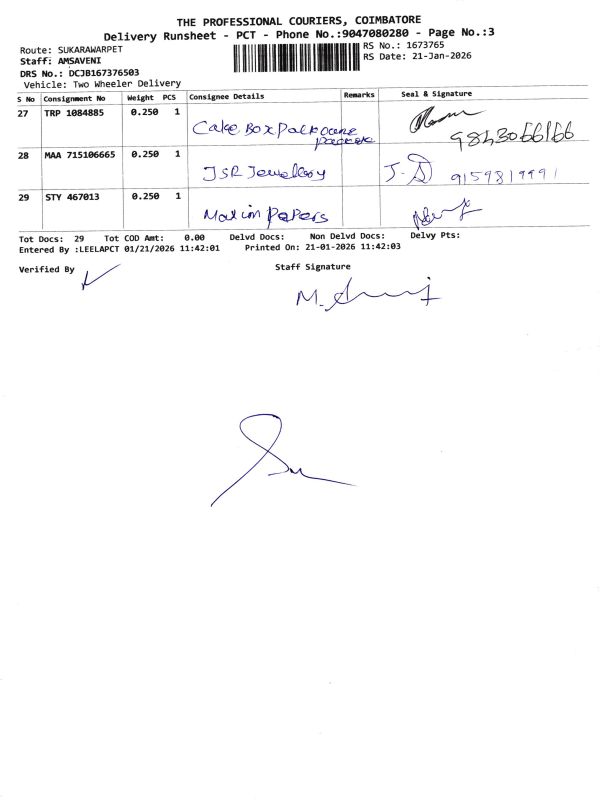 THE PROFESSIONAL COURIERS, COIMBATORE
Delivery Runsheet - PCT - Phone No.:9047080280 - Page No.:3
Route: SUKARAWARPET
RS No.: 1673765
Staff: AMSAVENI
RS Date: 21-Jan-2026
DRS No.: DCJB167376503
Vehicle: Two Wheeler Delivery
S No Consignment No Weight PCS Consignee Details Remarks Seal & Signature
27 TRP 1084885 0.250 1 Cake Box
9843066166
28 MAA 715106665 0.250 1 JSR Jewellery 9159819991
29 STY 467013 0.250 1 Papers
Tot Docs: 29 Tot COD Amt: 0.00 Delvd Docs: Non Delvd Docs: Delvy Pts:
Entered By :LEELAPCT 01/21/2026 11:42:01 Printed On: 21-01-2026 11:42:03
Verified By
Staff Signature